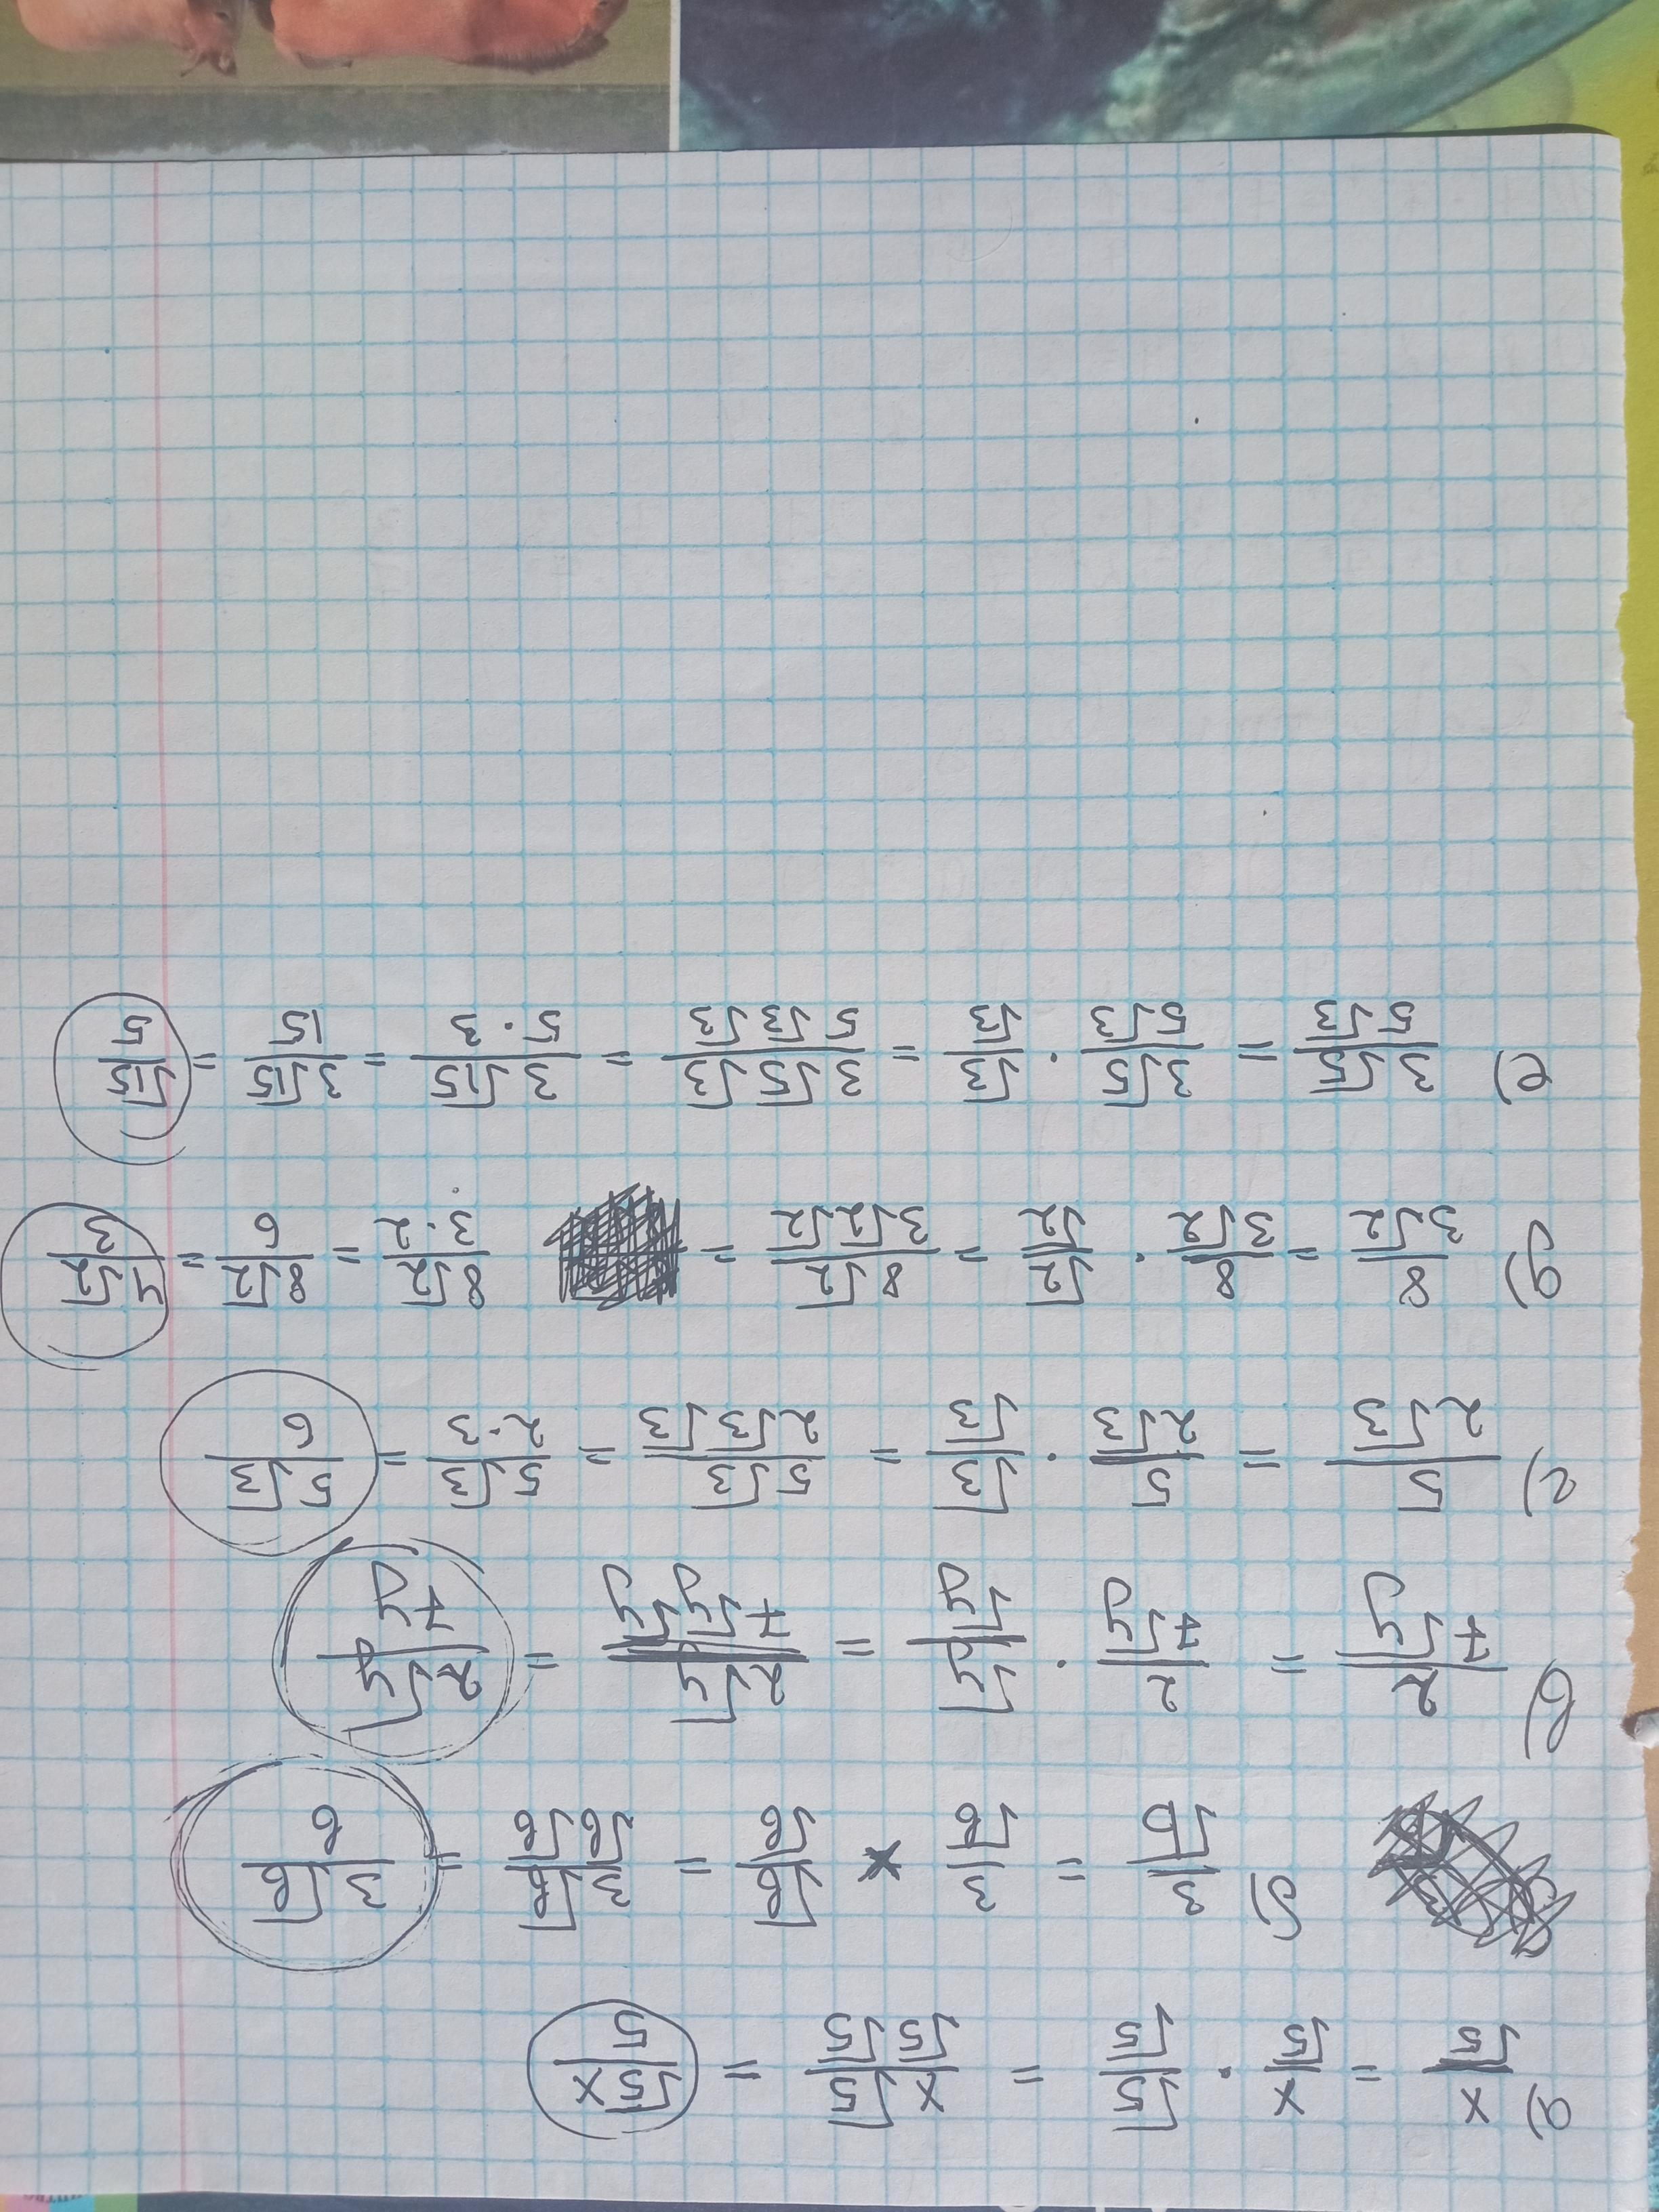 а) x/√5 = x/√5 · √5/√5 = x√5/√5√5 = √5x/5
б) 3/√b = 3/√b × √b/√b = 3√b/√b√b = 3√b/b
в) 2/7√y = 2/7√y · √y/√y = 2√y/7√y√y = 2√y/7y
г) 5/2√3 = 5/2√3 · √3/√3 = 5√3/2√3√3 = 5√3/2·3 = 5√3/6
д) 8/3√2 = 8/3√2 · √2/√2 = 8√2/3√2√2 = 8√2/3·2 = 8√2/6 = 4√2/3
е) 3√5/5√3 = 3√5/5√3 · √3/√3 = 3√5√3/5√3√3 = 3√15/5·3 = 3√15/15 = √15/5